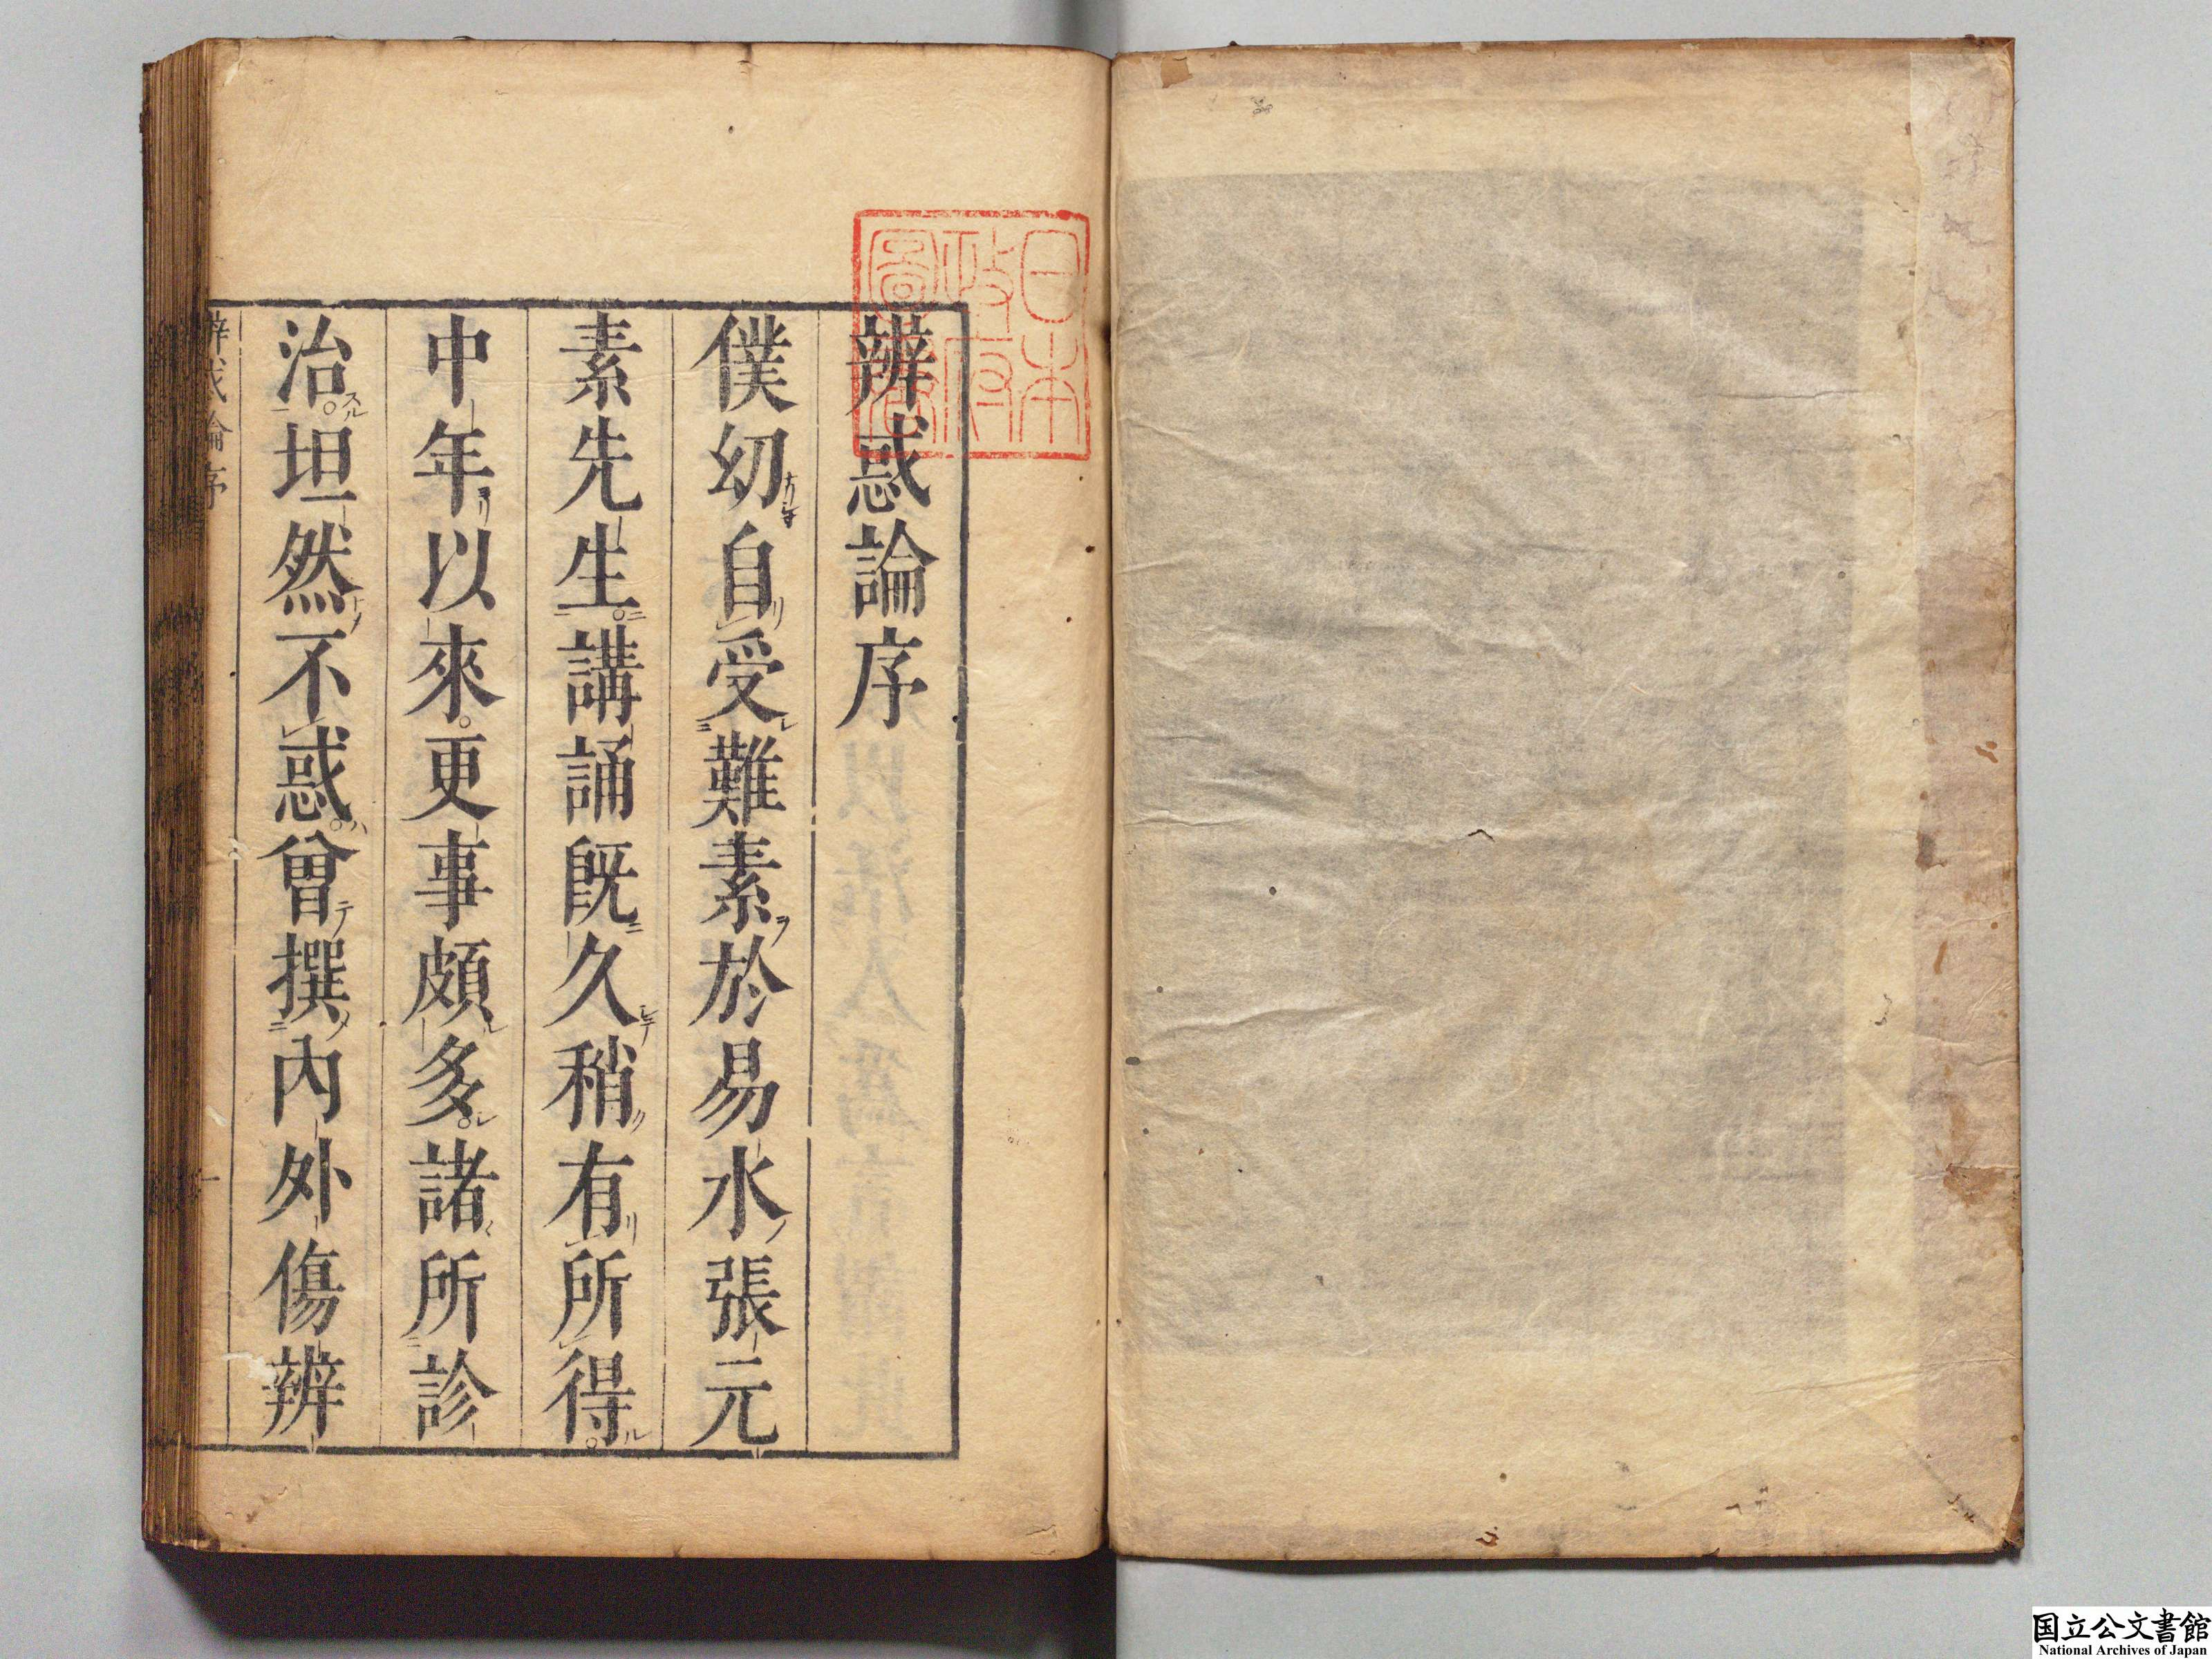 日本
政府
圖書
辨惑論序
僕幼自受難素於易水張元
素先生講誦既久稍有所得
中年以來更事頗多諸所診
治坦然不惑曾撰內外傷辨
辨惑論序
一
国立公文書館
National Archives of Japan